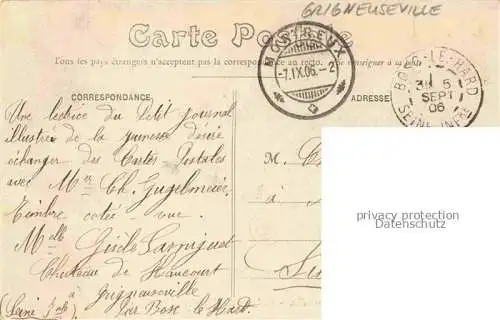 GRIGNEUSEVILLE
Carte Postale
Tous les pays étrangers n'acceptent pas la correspondance au recto.
MONTREUX
-7.IX.06.-2
BOSC-LE-HARD
3 5
SEPT
06
SEINE-INFRE
CORRESPONDANCE
ADRESSE
Une lectrice du Petit Journal
illustré de la jeunesse désire
échanger des Cartes-Postales
avec Mr Ch. Gugelmeier
Timbre coté vue.
Melle Gisèle
Château de
à Grigneuseville
(Seine Infre) par Bosc le Hard.
M.
à
privacy protection
Datenschutz